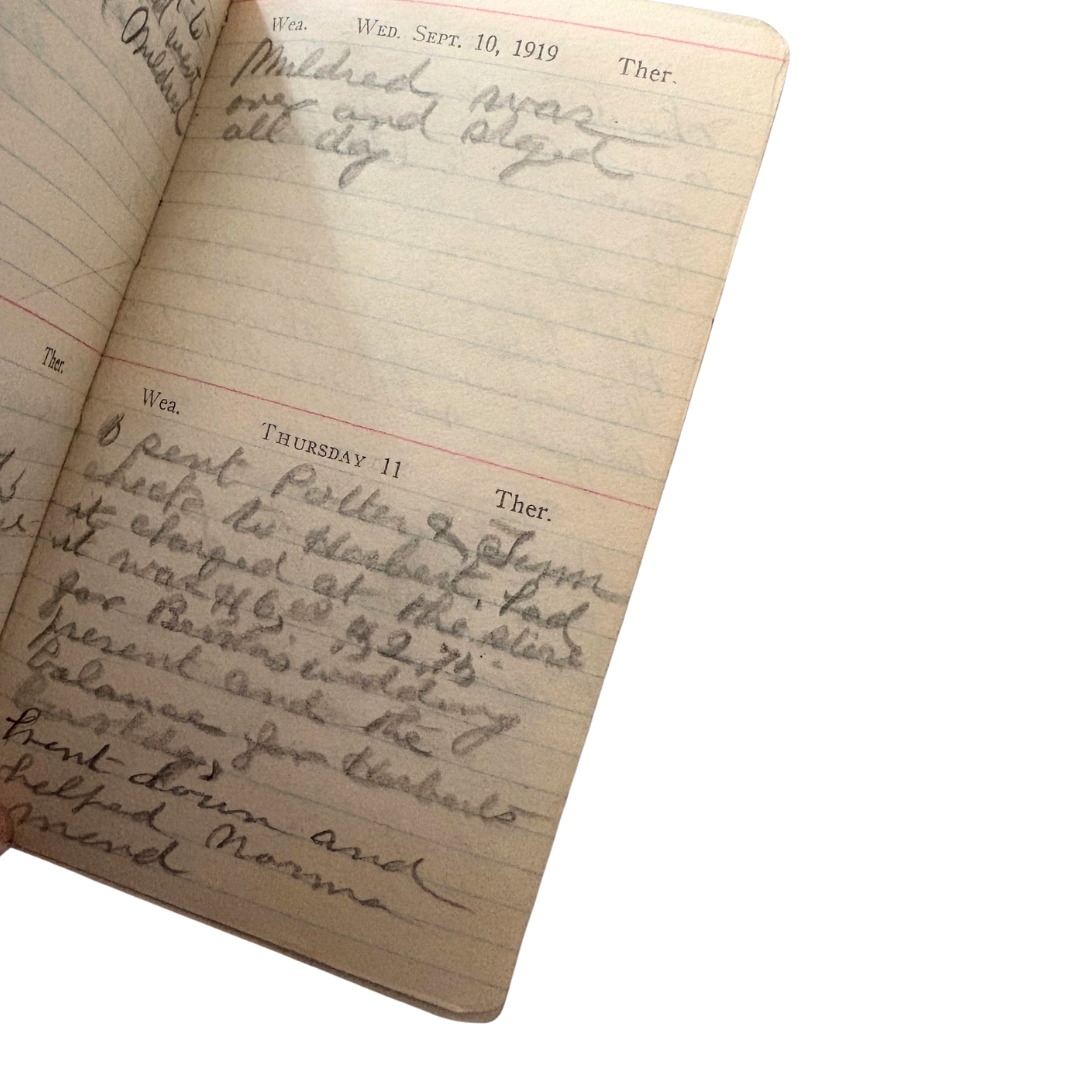 to
went
Mildred
Ther.
Wea. WED. SEPT. 10, 1919 Ther.
Mildred was
over and stayed
all day
Wea. THURSDAY 11 Ther.
I sent Potter &
check to Herbert. had
it charged at the store
it was $6.00 $2.75
for wedding
present and the
balance for Herberts
birthday
Went down and
helped Norma
mend